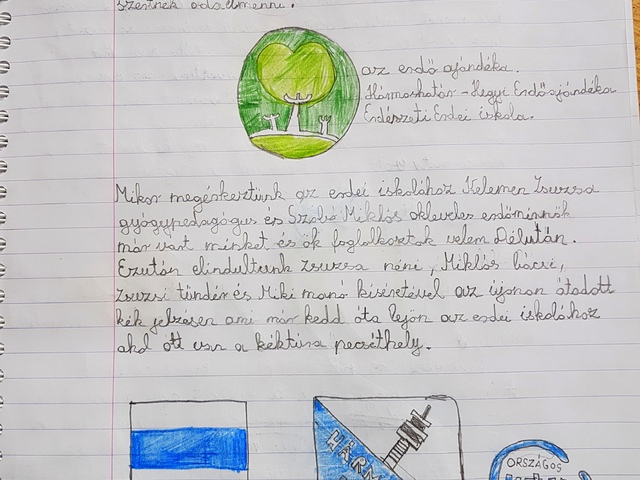 szestnek odaelmenni.
az erdő ajándéka.
Hármashatár-Hegyi Erdőajándéka
Erdészeti Erdei iskola.
Mikor megérkeztünk az erdei iskolához Kelemen Zsuzsa
gyógypedagógus és Szabó Miklós okleveles erdőmérnök
már várt minket és ők foglalkoztak velem Délután.
Ezután elindultunk Zsuzsa néni, Miklós bácsi,
Zsuzsi tündér és Miki manó kíséretével az újonan átadott
kék jelzésen ami már kedd óta lejön az erdei iskolához
ahol ott van a kéktúra pecséthely.
HÁRM
ORSZÁGOS